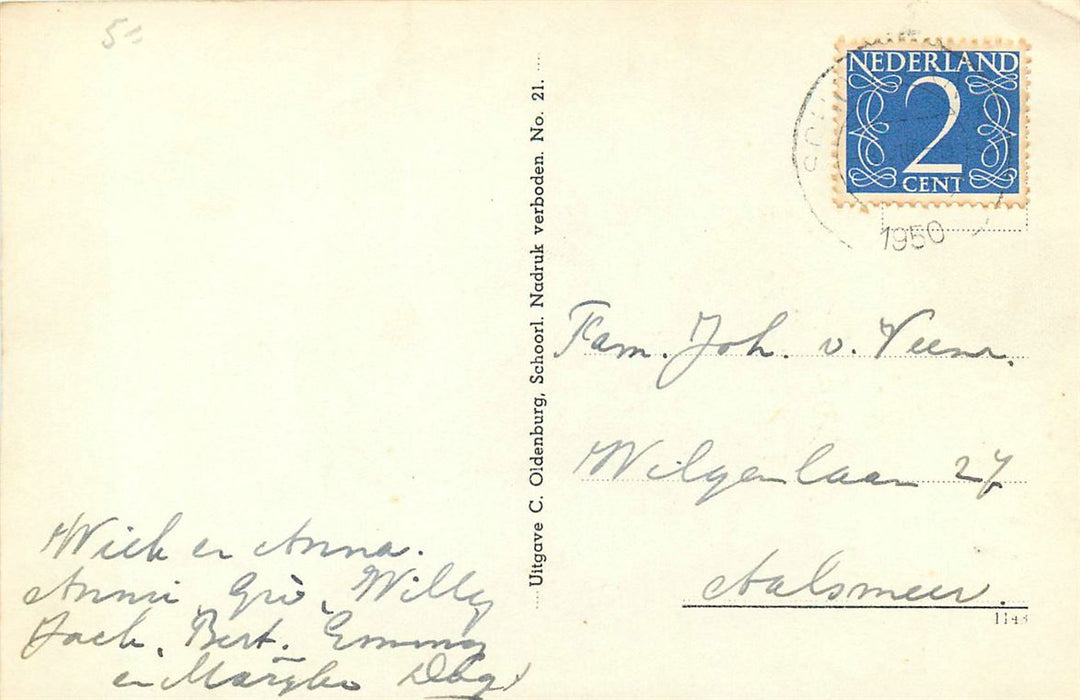 5
NEDERLAND
2
CENT
SCHOORL
1950
Uitgave C. Oldenburg, Schoorl. Nadruk verboden. No. 21.
Fam. Joh. v. Veene.
Wilgenlaan 27
Aalsmeer.
1143
Wick en Anna.
Anni, Gré, Willy
Jack, Bert. Emmy
en